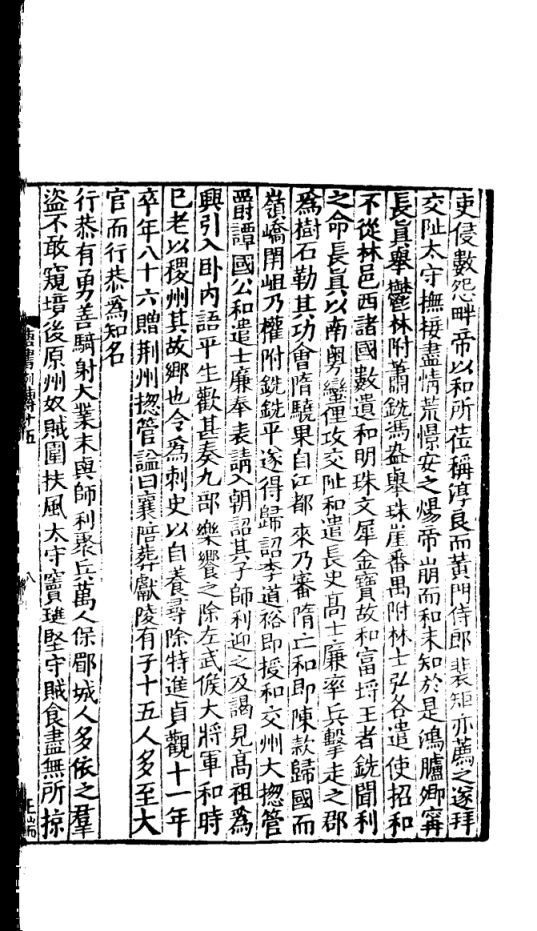 吏侵數怨畔帝以和所莅稱淳良而黃門侍郎裴矩亦薦之遂拜
交阯太守撫接盡情荒憬安之煬帝崩而和未知於是鴻臚卿甯
長眞舉鬱林附蕭銑馮盎舉珠崖番禺附林士弘各遣使招和
不從林邑西諸國數遺和明珠文犀金寶故和富埒王者銑聞利
之命長眞以南粵蠻俚攻交阯和遣長史高士廉率兵擊走之郡
爲樹石勒其功會隋驍果自江都來乃審隋亡和即陳款歸國而
嶺嶠閉岨乃權附銑銑平遂得歸詔李道裕即授和交州大揔管
爵譚國公和遣士廉奉表請入朝詔其子師利迎之及謁見高祖爲
興引入卧内語平生歡甚奏九部樂饗之除左武候大將軍和時
已老以稷州其故鄉也令爲刺史以自養尋除特進貞觀十一年
卒年八十六贈荆州揔管謚曰襄陪葬獻陵有子十五人多至大
官而行恭爲知名
行恭有勇善騎射大業末與師利聚兵萬人保郿城人多依之羣
盜不敢窺境後原州奴賊圍扶風太守竇璡堅守賊食盡無所掠
唐書列傳十五
八